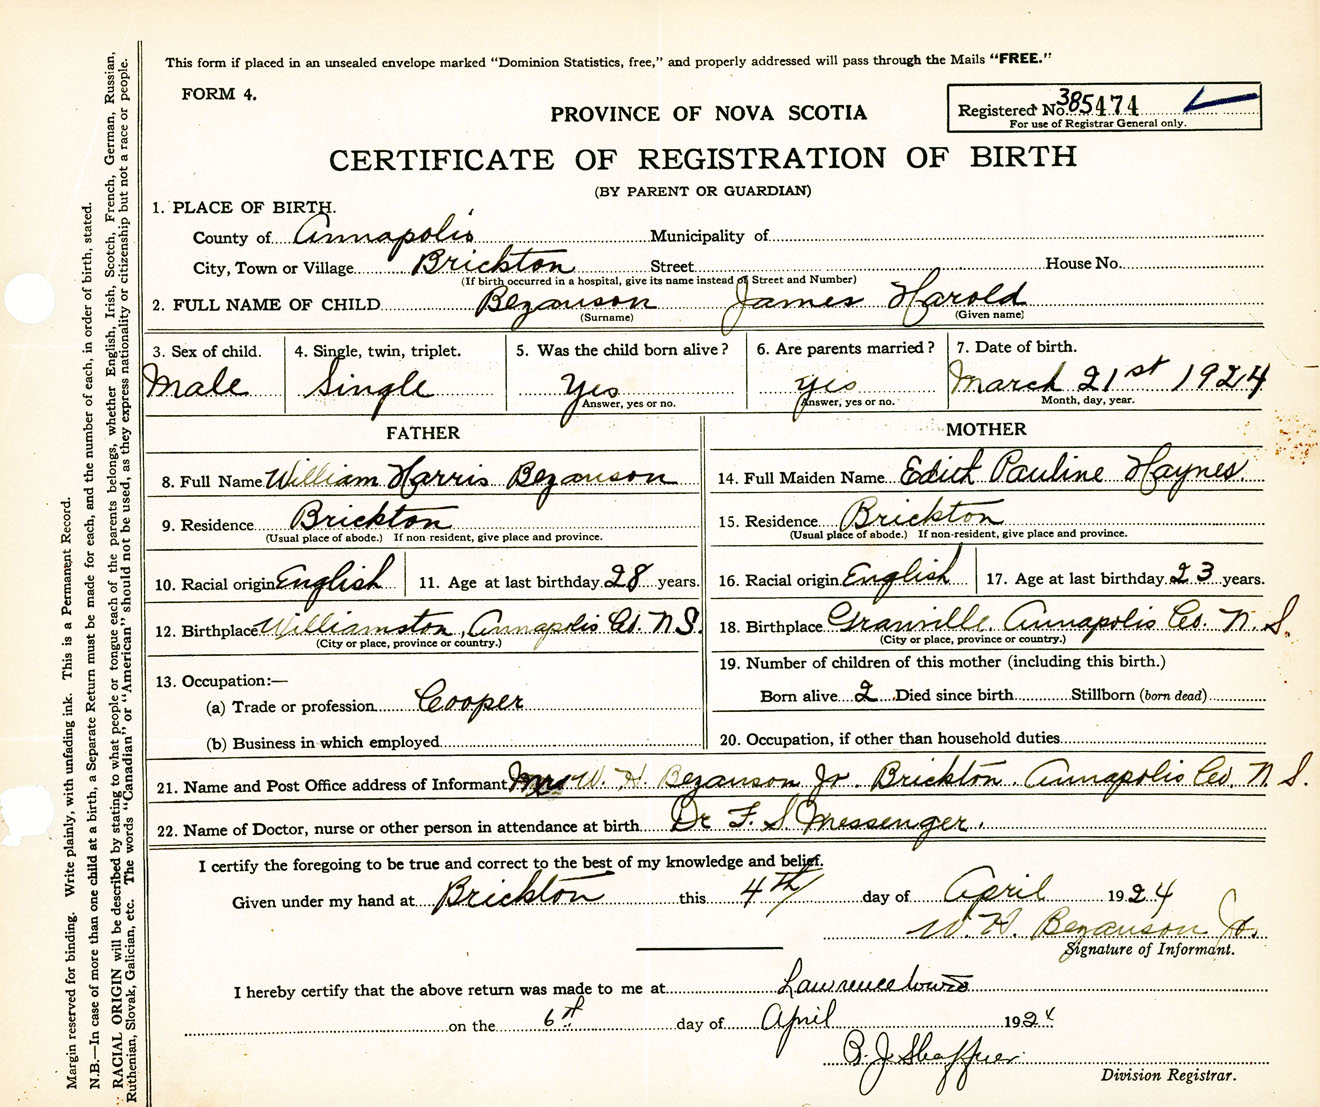 This form if placed in an unsealed envelope marked "Dominion Statistics, free," and properly addressed will pass through the Mails "FREE."
FORM 4.
Registered No. 385474
For use of Registrar General only.
PROVINCE OF NOVA SCOTIA
CERTIFICATE OF REGISTRATION OF BIRTH
(BY PARENT OR GUARDIAN)
1. PLACE OF BIRTH.
County of Annapolis Municipality of
City, Town or Village Brickton Street House No.
(If birth occurred in a hospital, give its name instead of Street and Number)
2. FULL NAME OF CHILD Bezanson James Harold
(Surname) (Given name)
3. Sex of child. 4. Single, twin, triplet. 5. Was the child born alive? 6. Are parents married? 7. Date of birth.
Male Single Yes yes March 21st 1924
Answer, yes or no. Answer, yes or no. Month, day, year.
FATHER
8. Full Name William Harris Bezanson
9. Residence Brickton
(Usual place of abode.) If non-resident, give place and province.
10. Racial origin English 11. Age at last birthday 28 years.
12. Birthplace Williamston, Annapolis Co. N.S.
(City or place, province or country.)
13. Occupation:—
(a) Trade or profession Cooper
(b) Business in which employed
MOTHER
14. Full Maiden Name Edith Pauline Haynes.
15. Residence Brickton
(Usual place of abode.) If non-resident, give place and province.
16. Racial origin English 17. Age at last birthday 23 years.
18. Birthplace Granville Annapolis Co. N.S.
(City or place, province or country.)
19. Number of children of this mother (including this birth.)
Born alive 2 Died since birth Stillborn (born dead)
20. Occupation, if other than household duties
21. Name and Post Office address of Informant Mrs W. H. Bezanson Jr. Brickton. Annapolis Co. N.S.
22. Name of Doctor, nurse or other person in attendance at birth Dr F. S Messenger.
I certify the foregoing to be true and correct to the best of my knowledge and belief.
Given under my hand at Brickton this 4th day of April 1924
W. H. Bezanson Jr.
Signature of Informant.
I hereby certify that the above return was made to me at Lawrencetown
on the 6th day of April 1924
J Shaffner
Division Registrar.
Margin reserved for binding. Write plainly, with unfading ink. This is a Permanent Record.
N.B.—In case of more than one child at a birth, a Separate Return must be made for each, and the number of each, in order of birth, stated.
RACIAL ORIGIN will be described by stating to what people or tongue each of the parents belongs, whether English, Irish, Scotch, French, German, Russian,
Ruthenian, Slovak, Galician, etc. The words "Canadian" or "American" should not be used, as they express nationality or citizenship but not a race or people.